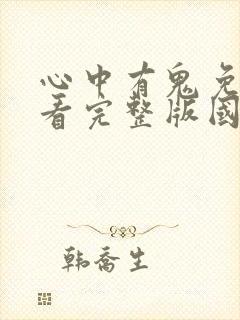 心中有鬼免
看完整版国
韩乔生